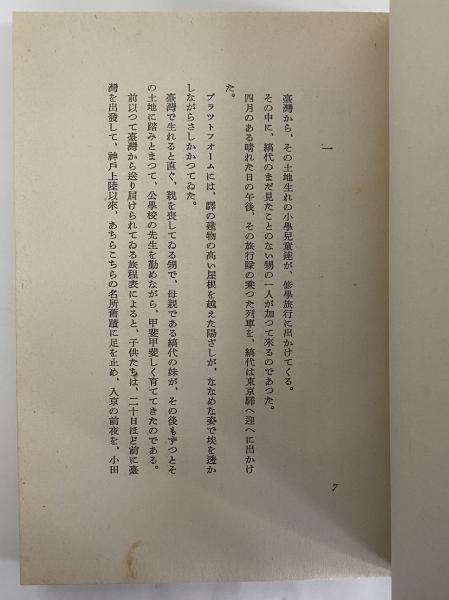 一
臺灣から、その土地生れの小學兒童達が、修學旅行に出かけてくる。
その中に、縞代のまだ見たことのない甥の一人が加つて來るのであつた。
四月のある晴れた日の午後、その旅行隊の乘つた列車を、縞代は東京驛へ迎へに出かけ
た。
プラツトフオームには、驛の建物の高い屋根を越えた陽さしが、ななめな姿で埃を透か
しながらさしかかつてゐた。
臺灣で生れると直ぐ、親を喪してゐる甥で、母親である縞代の妹が、その後もずつとそ
の土地に踏みとまつて、公學校の先生を勤めながら、甲斐甲斐しく育ててきたのである。
前以つて臺灣から送り届けられてゐる旅程表によると、子供たちは、二十日ほど前に臺
灣を出發して、神戸上陸以來、あちらこちらの名所舊蹟に足を止め、入京の前夜を、小田
7